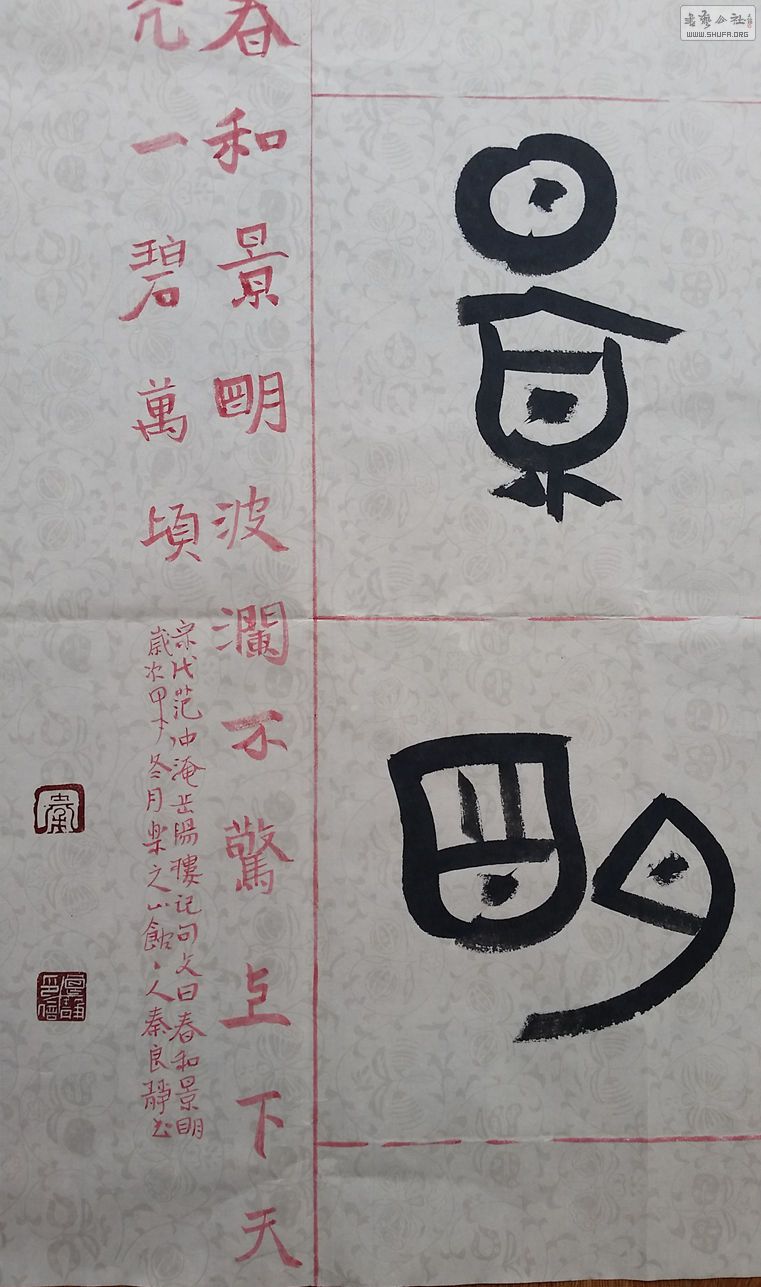 書藝公社
WWW.SHUFA.ORG
景朙
春和景朙波瀾不驚上下天
光一碧萬頃
宋代范仲淹岳陽樓記句文曰春和景明
歲次甲午冬月樂之山館丶人秦良靜书
秦